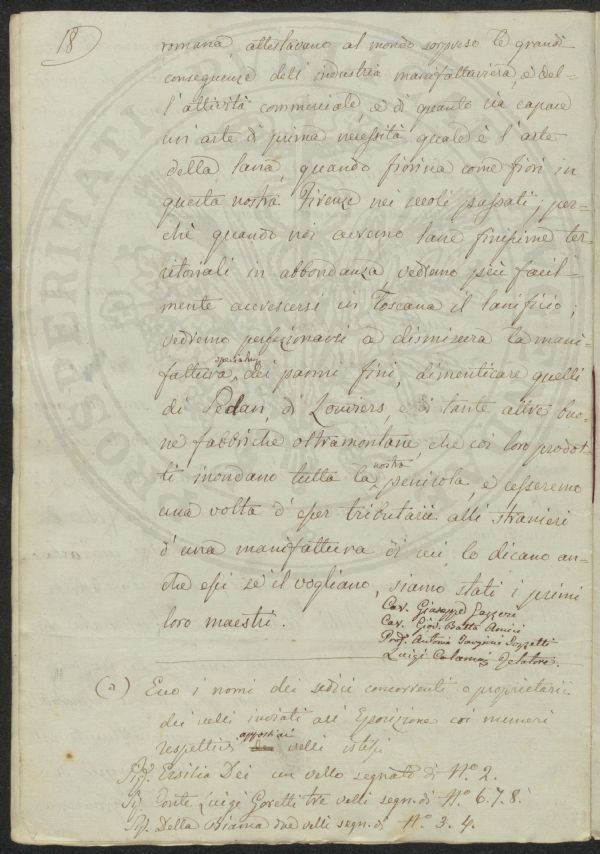 18
romana, attestavano al mondo sorpreso le grandi
conseguenze dell'industria manifatturiera, e del-
l'attività commerciale, e di quanto sia capace
un'arte di prima necessità quale è l'arte
della lana, quando fiorisca come fiorì in
questa nostra Firenze nei secoli passati; per-
chè quando noi avremo lane finissime ter-
ritoriali in abbondanza, vedremo più facil-
mente accrescersi in Toscana il lanificio;
vedremo perfezionarsi a dismisura la mani-
fattura specialm. dei panni fini, dimenticare quelli
di Sedan, di Louviers, e di tante altre buo-
ne fabbriche oltramontane che coi loro prodot-
ti inondano tutta la nostra penisola, e cesseremo
una volta d'esser tributarii alli stranieri
d'una manifattura di cui, lo dicano an-
che essi se il vogliano, siamo stati i primi
loro maestri.
Cav. Giuseppe Gazzeri
Cav. Giov. Batta Amici
Prof. Antonio Targioni Tozzetti
Luigi Calamai Relatore.
(a) Ecco i nomi dei sedici concorrenti o proprietarii
dei velli inviati all'Esposizione coi numeri
respettivi apposti ai velli istessi
Sig. Ersilia Dei un vello segnato di N.º 2.
Sig. Conte Luigi Goretti tre velli segn. di N.º 6. 7. 8.
Sig. Della Bianca due velli segn. di N.º 3. 4.